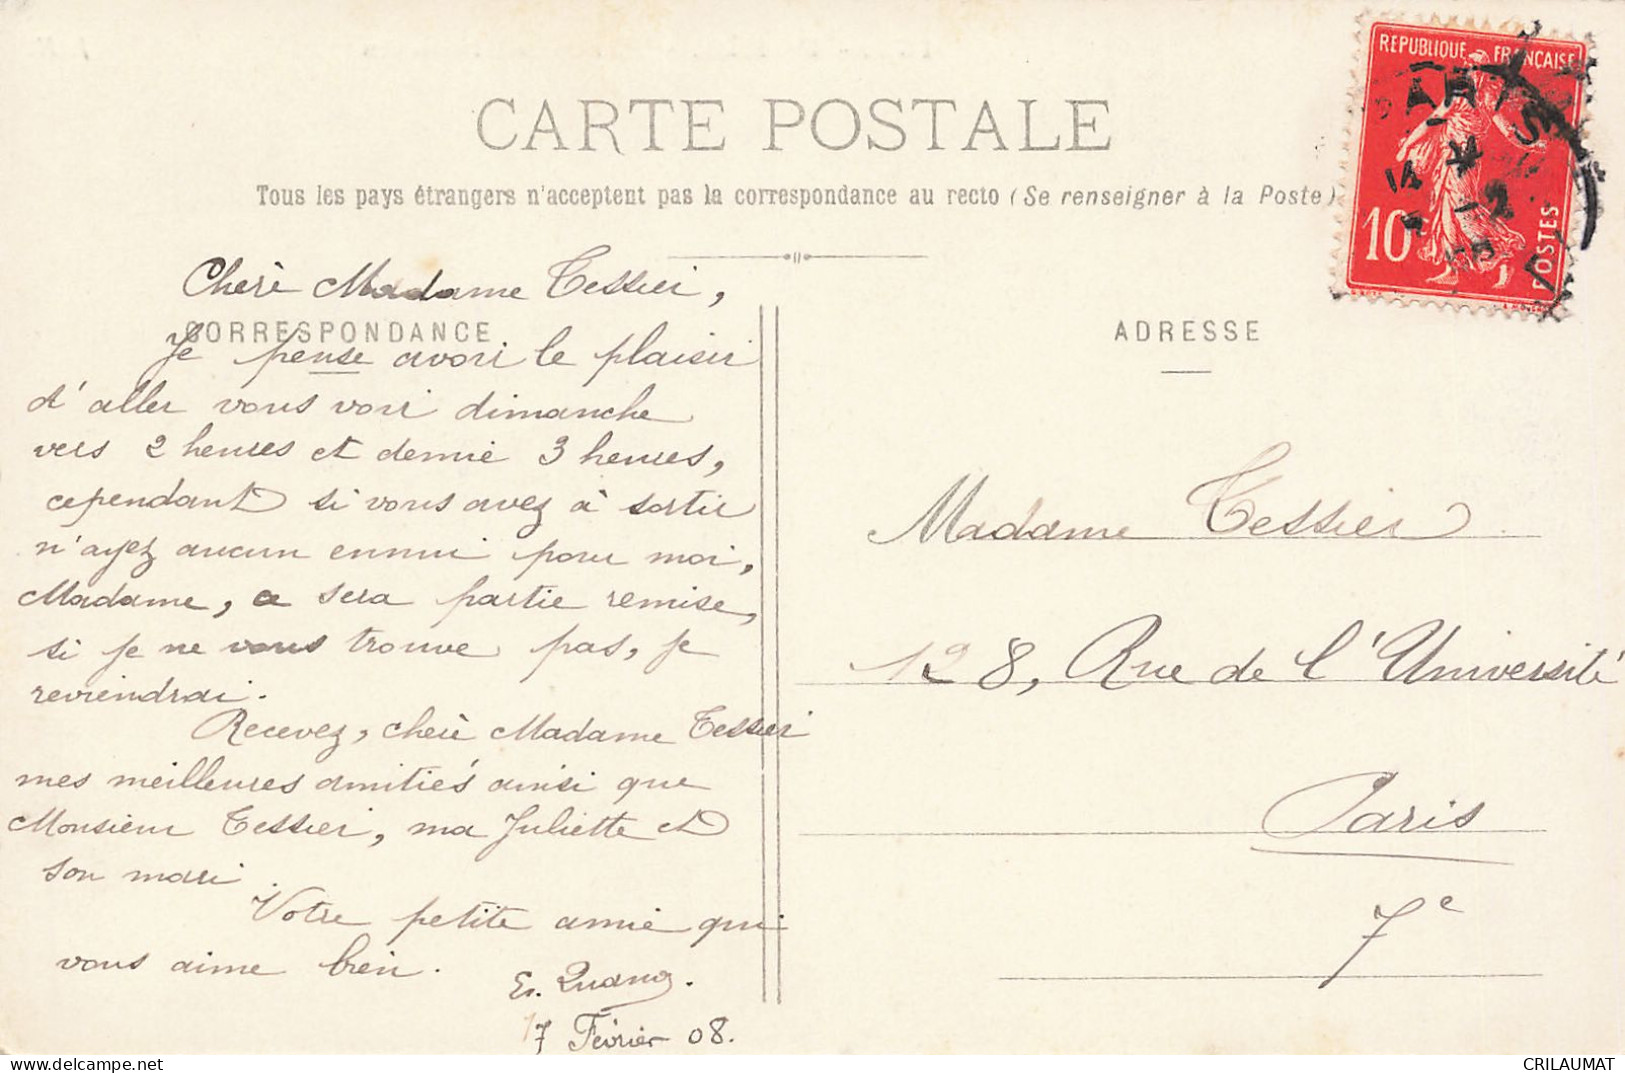 CARTE POSTALE
Tous les pays étrangers n'acceptent pas la correspondance au recto (Se renseigner à la Poste)
REPUBLIQUE FRANÇAISE
10c
POSTES
PARIS
14
7 - 2
08
CORRESPONDANCE
Chère Madame Tessier,
Je pense avoir le plaisir
d'aller vous voir dimanche
vers 2 heures et demie 3 heures,
cependant si vous avez à sortir
n'ayez aucun ennui pour moi,
Madame, ce sera partie remise,
si je ne vous trouve pas, je
reviendrai.
Recevez, chère Madame Tessier
mes meilleures amitiés ainsi que
Monsieur Tessier, ma Juliette et
son mari
Votre petite amie qui
vous aime bien.
Quang.
7 Février 08.
ADRESSE
Madame Tessier
128, Rue de l'Université
Paris
7e
https://www.delcampe.net
CRILAUMAT